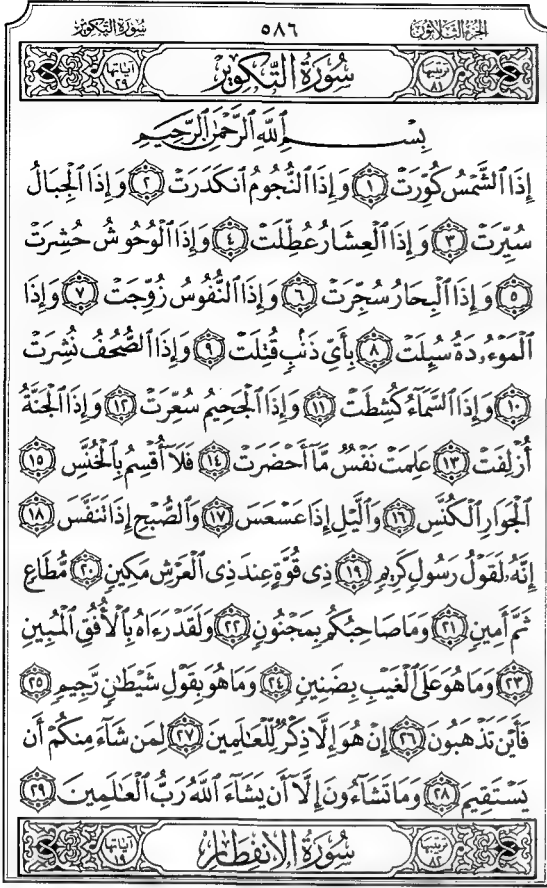 الجزء الثلاثون ٥٨٦ سورة التكوير
ترتيبها ٨١ سُورَةُ التَّكْوِيرِ آياتها ٢٩
بِسْمِ ٱللَّهِ ٱلرَّحْمَٰنِ ٱلرَّحِيمِ
إِذَا ٱلشَّمْسُ كُوِّرَتْ ١ وَإِذَا ٱلنُّجُومُ ٱنكَدَرَتْ ٢ وَإِذَا ٱلْجِبَالُ
سُيِّرَتْ ٣ وَإِذَا ٱلْعِشَارُ عُطِّلَتْ ٤ وَإِذَا ٱلْوُحُوشُ حُشِرَتْ
٥ وَإِذَا ٱلْبِحَارُ سُجِّرَتْ ٦ وَإِذَا ٱلنُّفُوسُ زُوِّجَتْ ٧ وَإِذَا
ٱلْمَوْءُۥدَةُ سُئِلَتْ ٨ بِأَىِّ ذَنۢبٍ قُتِلَتْ ٩ وَإِذَا ٱلصُّحُفُ نُشِرَتْ
١٠ وَإِذَا ٱلسَّمَآءُ كُشِطَتْ ١١ وَإِذَا ٱلْجَحِيمُ سُعِّرَتْ ١٢ وَإِذَا ٱلْجَنَّةُ
أُزْلِفَتْ ١٣ عَلِمَتْ نَفْسٌ مَّآ أَحْضَرَتْ ١٤ فَلَآ أُقْسِمُ بِٱلْخُنَّسِ ١٥
ٱلْجَوَارِ ٱلْكُنَّسِ ١٦ وَٱلَّيْلِ إِذَا عَسْعَسَ ١٧ وَٱلصُّبْحِ إِذَا تَنَفَّسَ ١٨
إِنَّهُۥ لَقَوْلُ رَسُولٍ كَرِيمٍ ١٩ ذِى قُوَّةٍ عِندَ ذِى ٱلْعَرْشِ مَكِينٍ ٢٠ مُّطَاعٍ
ثَمَّ أَمِينٍ ٢١ وَمَا صَاحِبُكُم بِمَجْنُونٍ ٢٢ وَلَقَدْ رَءَاهُ بِٱلْأُفُقِ ٱلْمُبِينِ
٢٣ وَمَا هُوَ عَلَى ٱلْغَيْبِ بِضَنِينٍ ٢٤ وَمَا هُوَ بِقَوْلِ شَيْطَٰنٍ رَّجِيمٍ ٢٥
فَأَيْنَ تَذْهَبُونَ ٢٦ إِنْ هُوَ إِلَّا ذِكْرٌ لِّلْعَٰلَمِينَ ٢٧ لِمَن شَآءَ مِنكُمْ أَن
يَسْتَقِيمَ ٢٨ وَمَا تَشَآءُونَ إِلَّآ أَن يَشَآءَ ٱللَّهُ رَبُّ ٱلْعَٰلَمِينَ ٢٩
ترتيبها ٨٢ سُورَةُ الإِنفِطَارِ آياتها ١٩